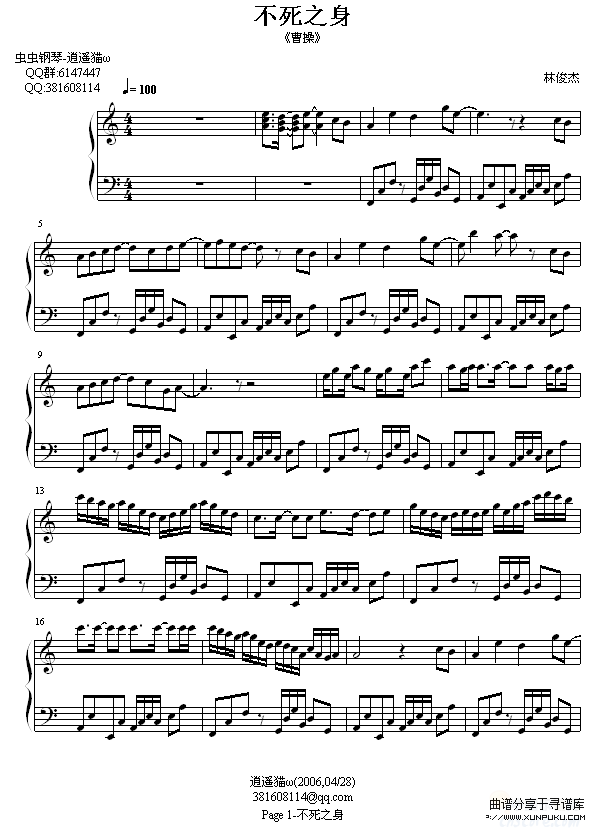 不死之身
《曹操》
虫虫钢琴-逍遥猫ω
QQ群:6147447
QQ:381608114
♩= 100
林俊杰
5
9
13
16
逍遥猫ω(2006,04/28)
381608114@qq.com
Page 1-不死之身
曲谱分享于寻谱库
WWW.XUNPUKU.COM